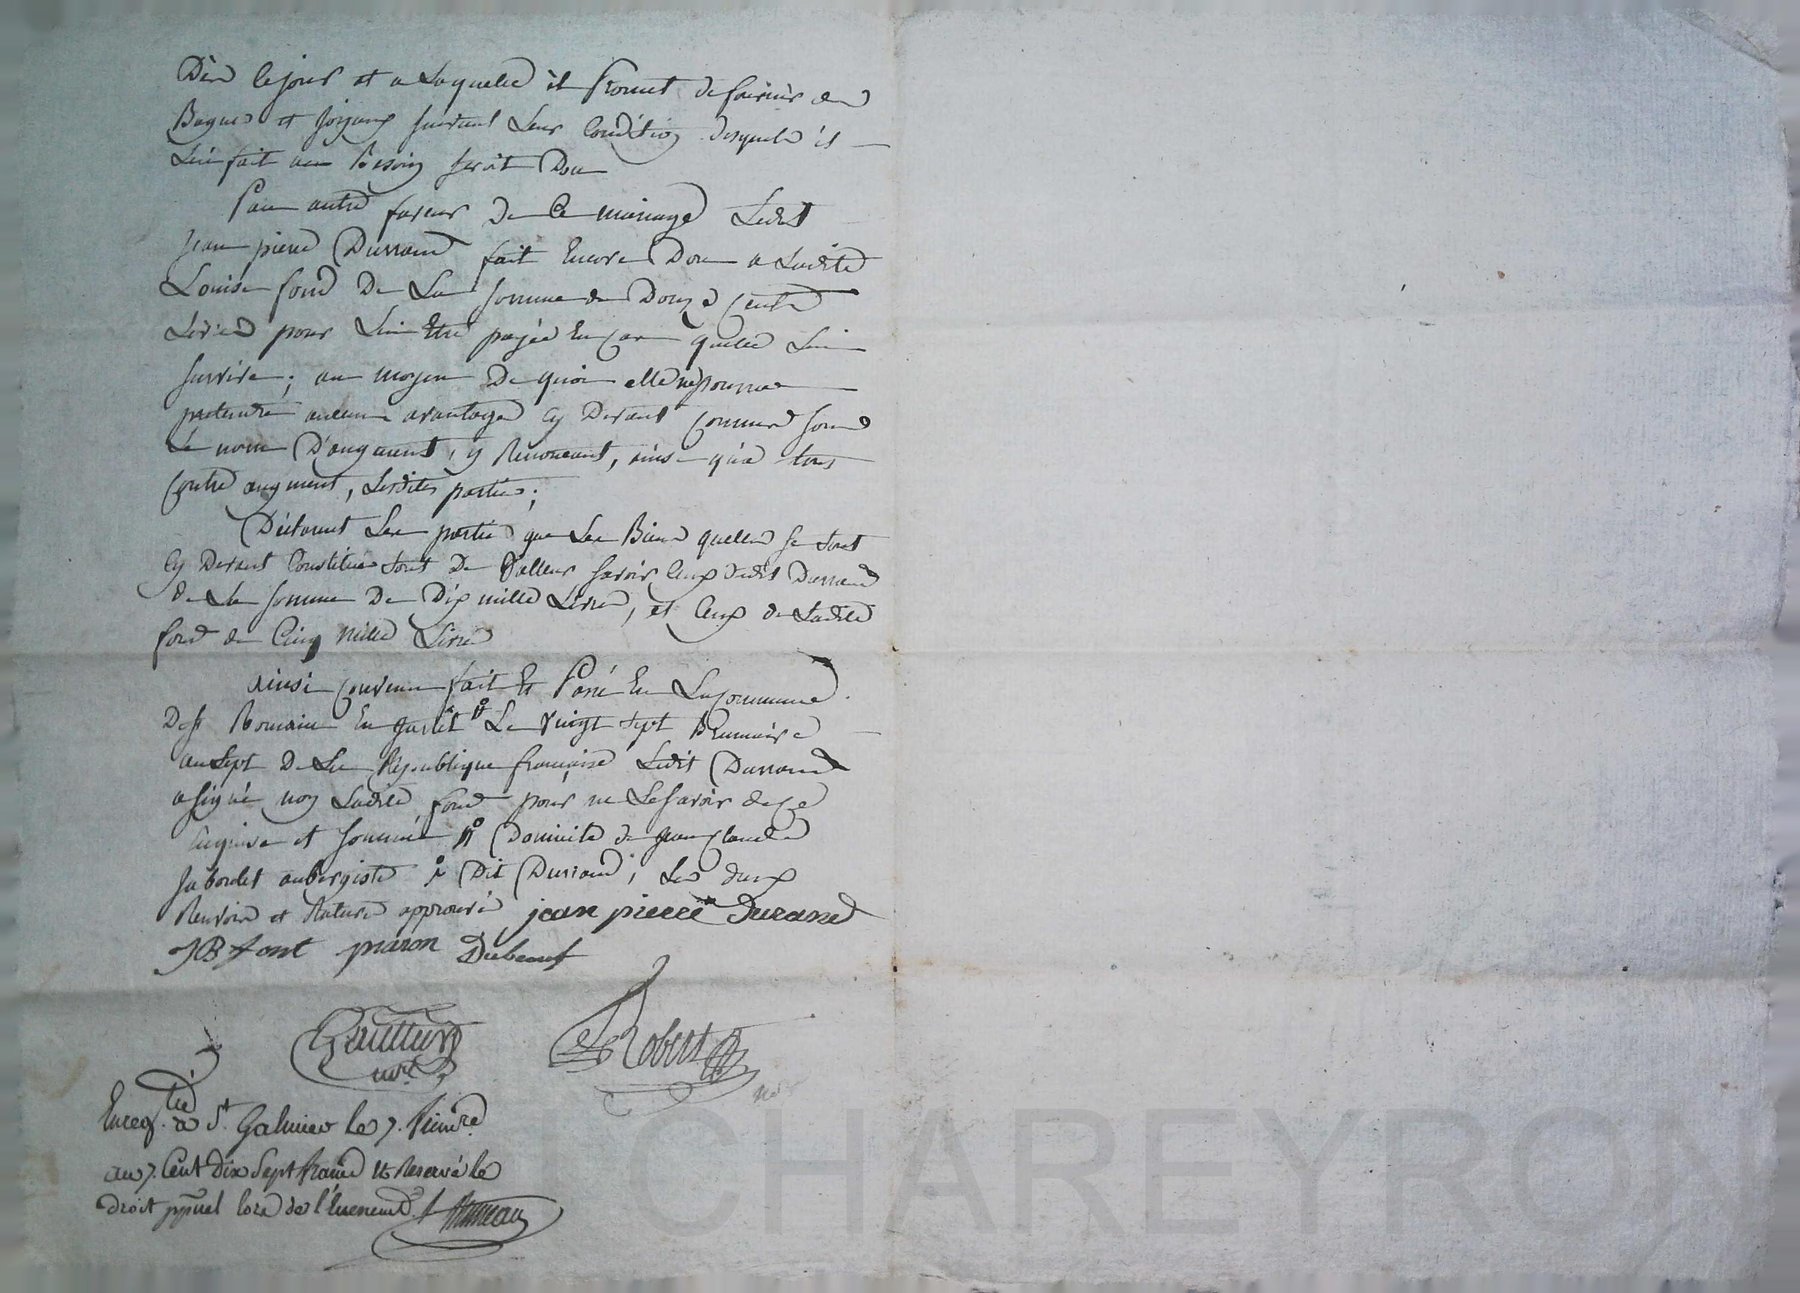 Dès ce jour et a Laquelle il Promet de fournir des
Bagues et Joyaux suivant Leur Condition desquels il
Lui fait au Besoin seroit Don
Pour autre faveur De Ce mariage Ledit
Jean pierre Durrand fait Encore Don a Ladite
Louise fond De La somme de Douze Cents
Livres pour Lui Etre payée En Cas quelle Lui
survive; au moyen De quoi elle ne pourra
pretendre aucun avantage Cy Devant Connue sous
Le nom D'augment, y Renoncant, ainsi qu'a tout
Contre augment, Lesdites parties;
Déclarent Les parties que Les Biens quelles se sont
Cy Devant Constitués sont De Valleur savoir Ceux dudit Durrand
de La somme De Dix mille Livres, et Ceux de Ladite
fond de Cinq mille Livres
ainsi Convenu fait Et Passé En La Commune
De St Romain En Jarlet Le vingt sept Brumaire
an sept De La Republique francaise Ledit Durrand
a signé non Ladite fond pour ne Le savoir de ce
Enquise et sommée Domicile de Jean Claude
aubergiste Dit Durrand; Les deux
Renvois et Rature approuvé jean pierre Durand
JB font piaron Dubeuf
Robert
Enreg. tré à St Galmier le 7. frimre
an 7. Cent dix Sept francs et Reservé le
droit ppnel lors de l'Evenement
CHAREYRON